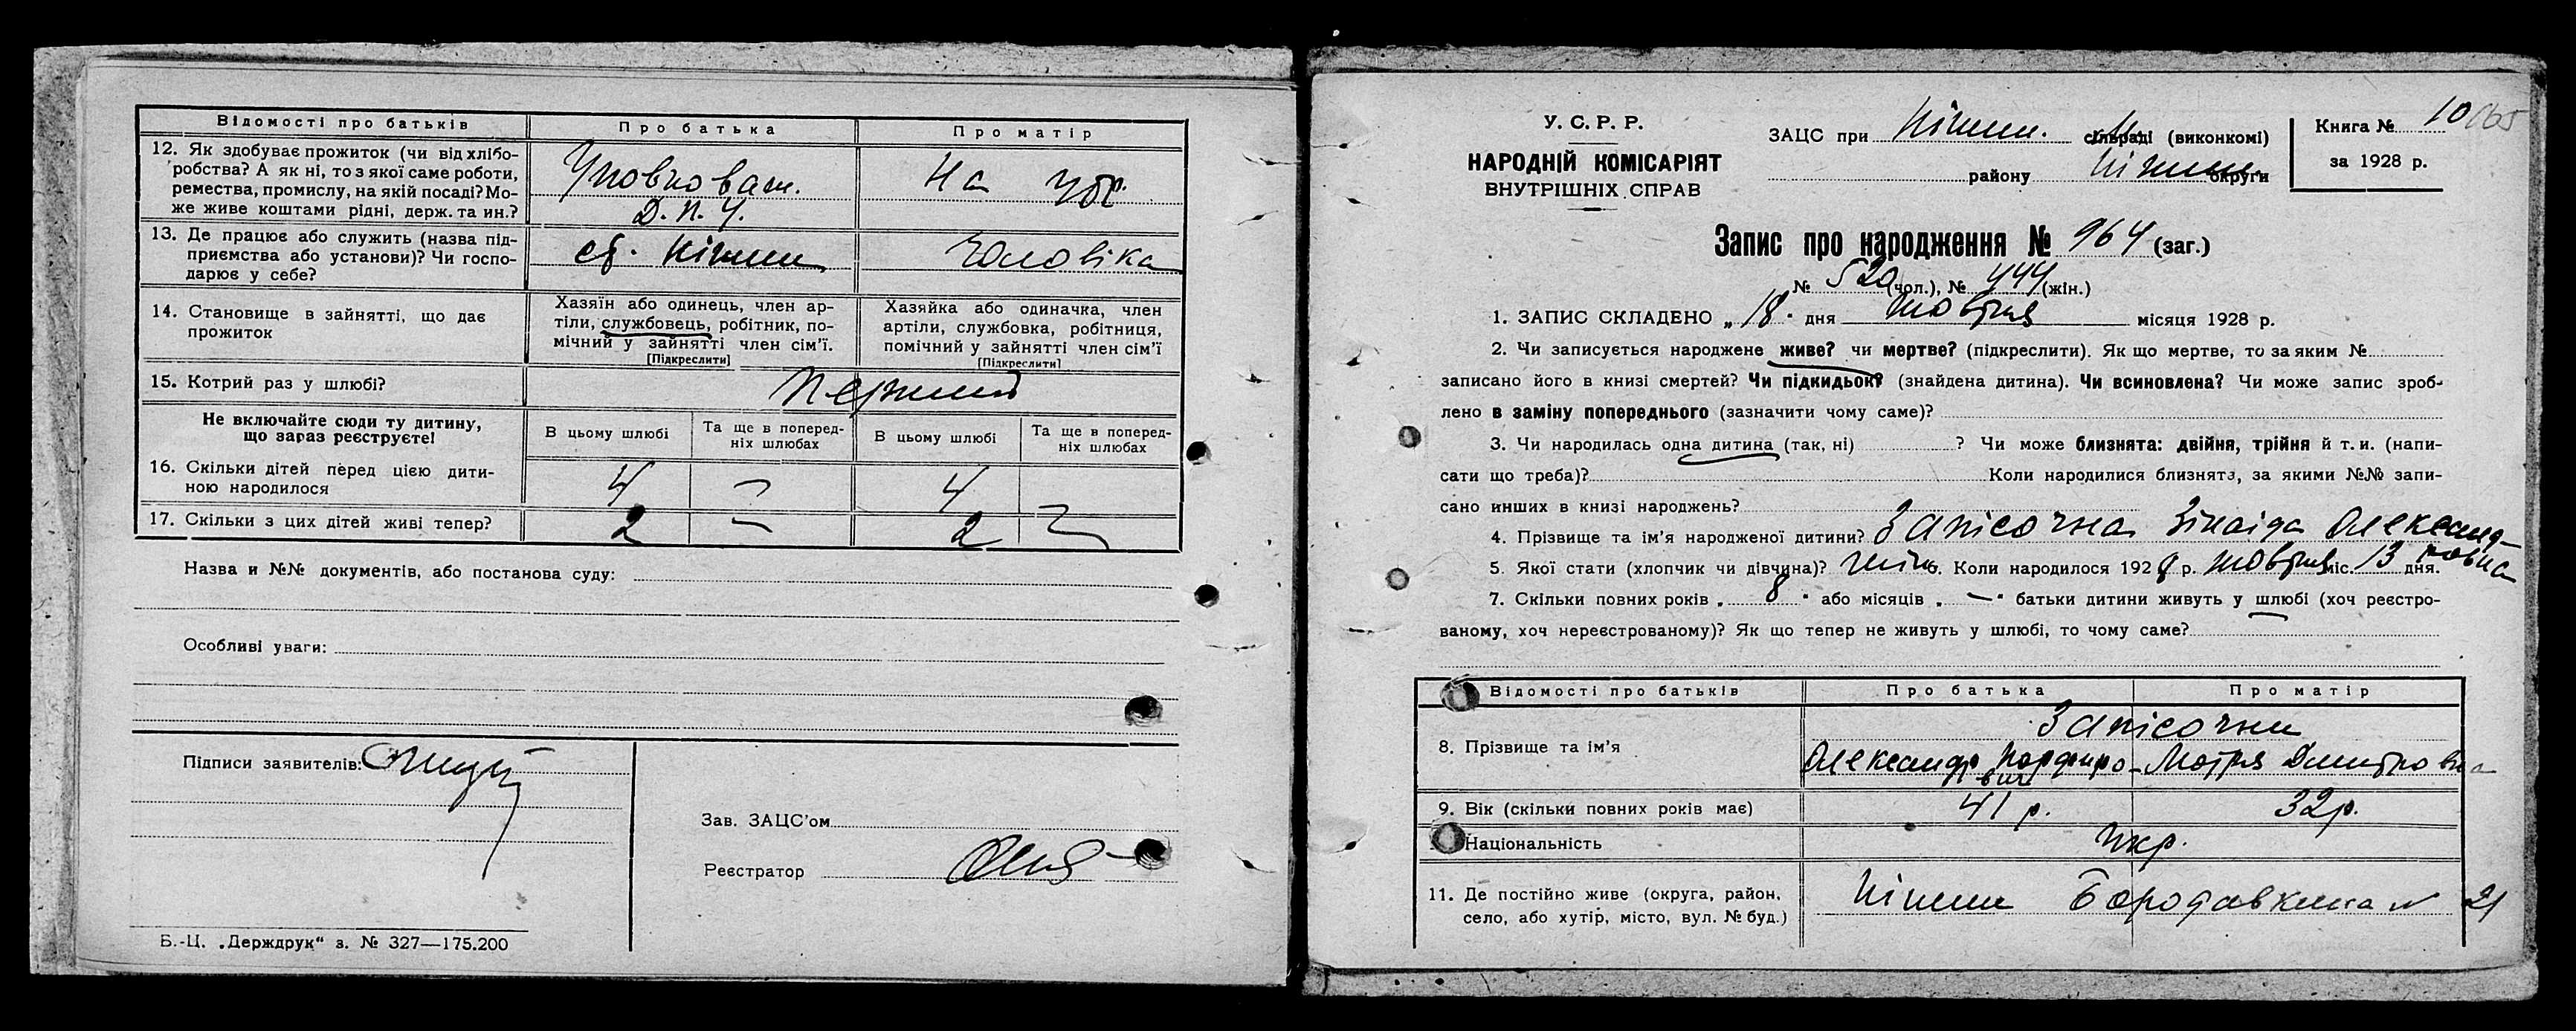 Відомості про батьків Про батька Про матір
12. Як здобуває прожиток (чи від хлібо-
робства? А як ні, то з якої саме роботи,
ремества, промислу, на якій посаді? Мо-
же живе коштами рідні, держ. та ин.?
Уповноваж. На утр.
Д.П.У.
13. Де працює або служить (назва під-
приємства або установи)? Чи госпо-
дарює у себе?
ст. Ніжин чоловіка
14. Становище в зайнятті, що дає
прожиток
Хазяїн або одинець, член ар-
тіли, службовець, робітник, по-
мічний у зайнятті член сім'ї.
[Підкреслити]
Хазяйка або одиначка, член
артіли, службовка, робітниця,
помічний у зайнятті член сім'ї
[Підкреслити]
15. Котрий раз у шлюбі? Перший
Не включайте сюди ту дитину,
що зараз реєструєте!
В цьому шлюбі Та ще в поперед-
ніх шлюбах В цьому шлюбі Та ще в поперед-
ніх шлюбах
16. Скільки дітей перед цією дити-
ною народилося 4 — 4
17. Скільки з цих дітей живі тепер? 2 — 2 —
Назва и №№ документів, або постанова суду:
Особливі уваги:
Підписи заявителів:
Зав. ЗАЦС'ом
Реєстратор
Б.-Ц. „Держдрук“ з. № 327—175.200
У. С. Р. Р.
НАРОДНІЙ КОМІСАРІЯТ
ВНУТРІШНІХ СПРАВ
ЗАЦС при Ніжин. сільраді (виконкомі)
району Ніжин. округи
Книга № 10
за 1928 р.
Запис про народження № 964 (заг.)
№ 520 (чол.), № 444 (жін.)
1. ЗАПИС СКЛАДЕНО „18“ дня жовтня місяця 1928 р.
2. Чи записується народжене живе? чи мертве? (підкреслити). Як що мертве, то за яким №
записано його в книзі смертей? Чи підкидьок? (знайдена дитина). Чи всиновлена? Чи може запис зроб-
лено в заміну попереднього (зазначити чому саме)?
3. Чи народилась одна дитина (так, ні) ? Чи може близнята: двійня, трійня й т. и. (напи-
сати що треба)? Коли народилися близнята, за якими №№ запи-
сано инших в книзі народжень?
4. Прізвище та ім'я народженої дитини? Запісочна Зінаіда Олександ-
ровна
5. Якої стати (хлопчик чи дівчина)? жін. Коли народилося 1928 р. жовтня міс. 13 дня.
7. Скільки повних років „8“ або місяців „—“ батьки дитини живуть у шлюбі (хоч реєстро-
ваному, хоч нереєстрованому)? Як що тепер не живуть у шлюбі, то чому саме?
Відомості про батьків Про батька Про матір
8. Прізвище та ім'я Запісочни
Олександр Порфиро-
вич Мотря Дмитровна
9. Вік (скільки повних років має) 41 р. 32 р.
Національність Укр.
11. Де постійно живе (округа, район,
село, або хутір, місто, вул. № буд.)
Ніжин Бородавкина № 21